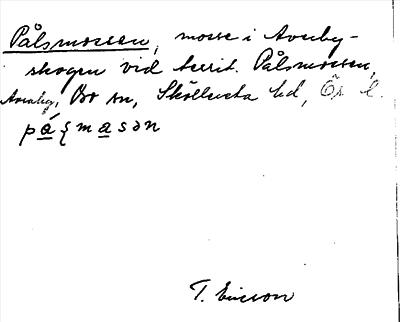 Pålsmossen, mosse i Averby-
skogen vid territ. Pålsmossen,
Averby, Bo sn, Sköllersta hd, Ör l.
T. Ericson